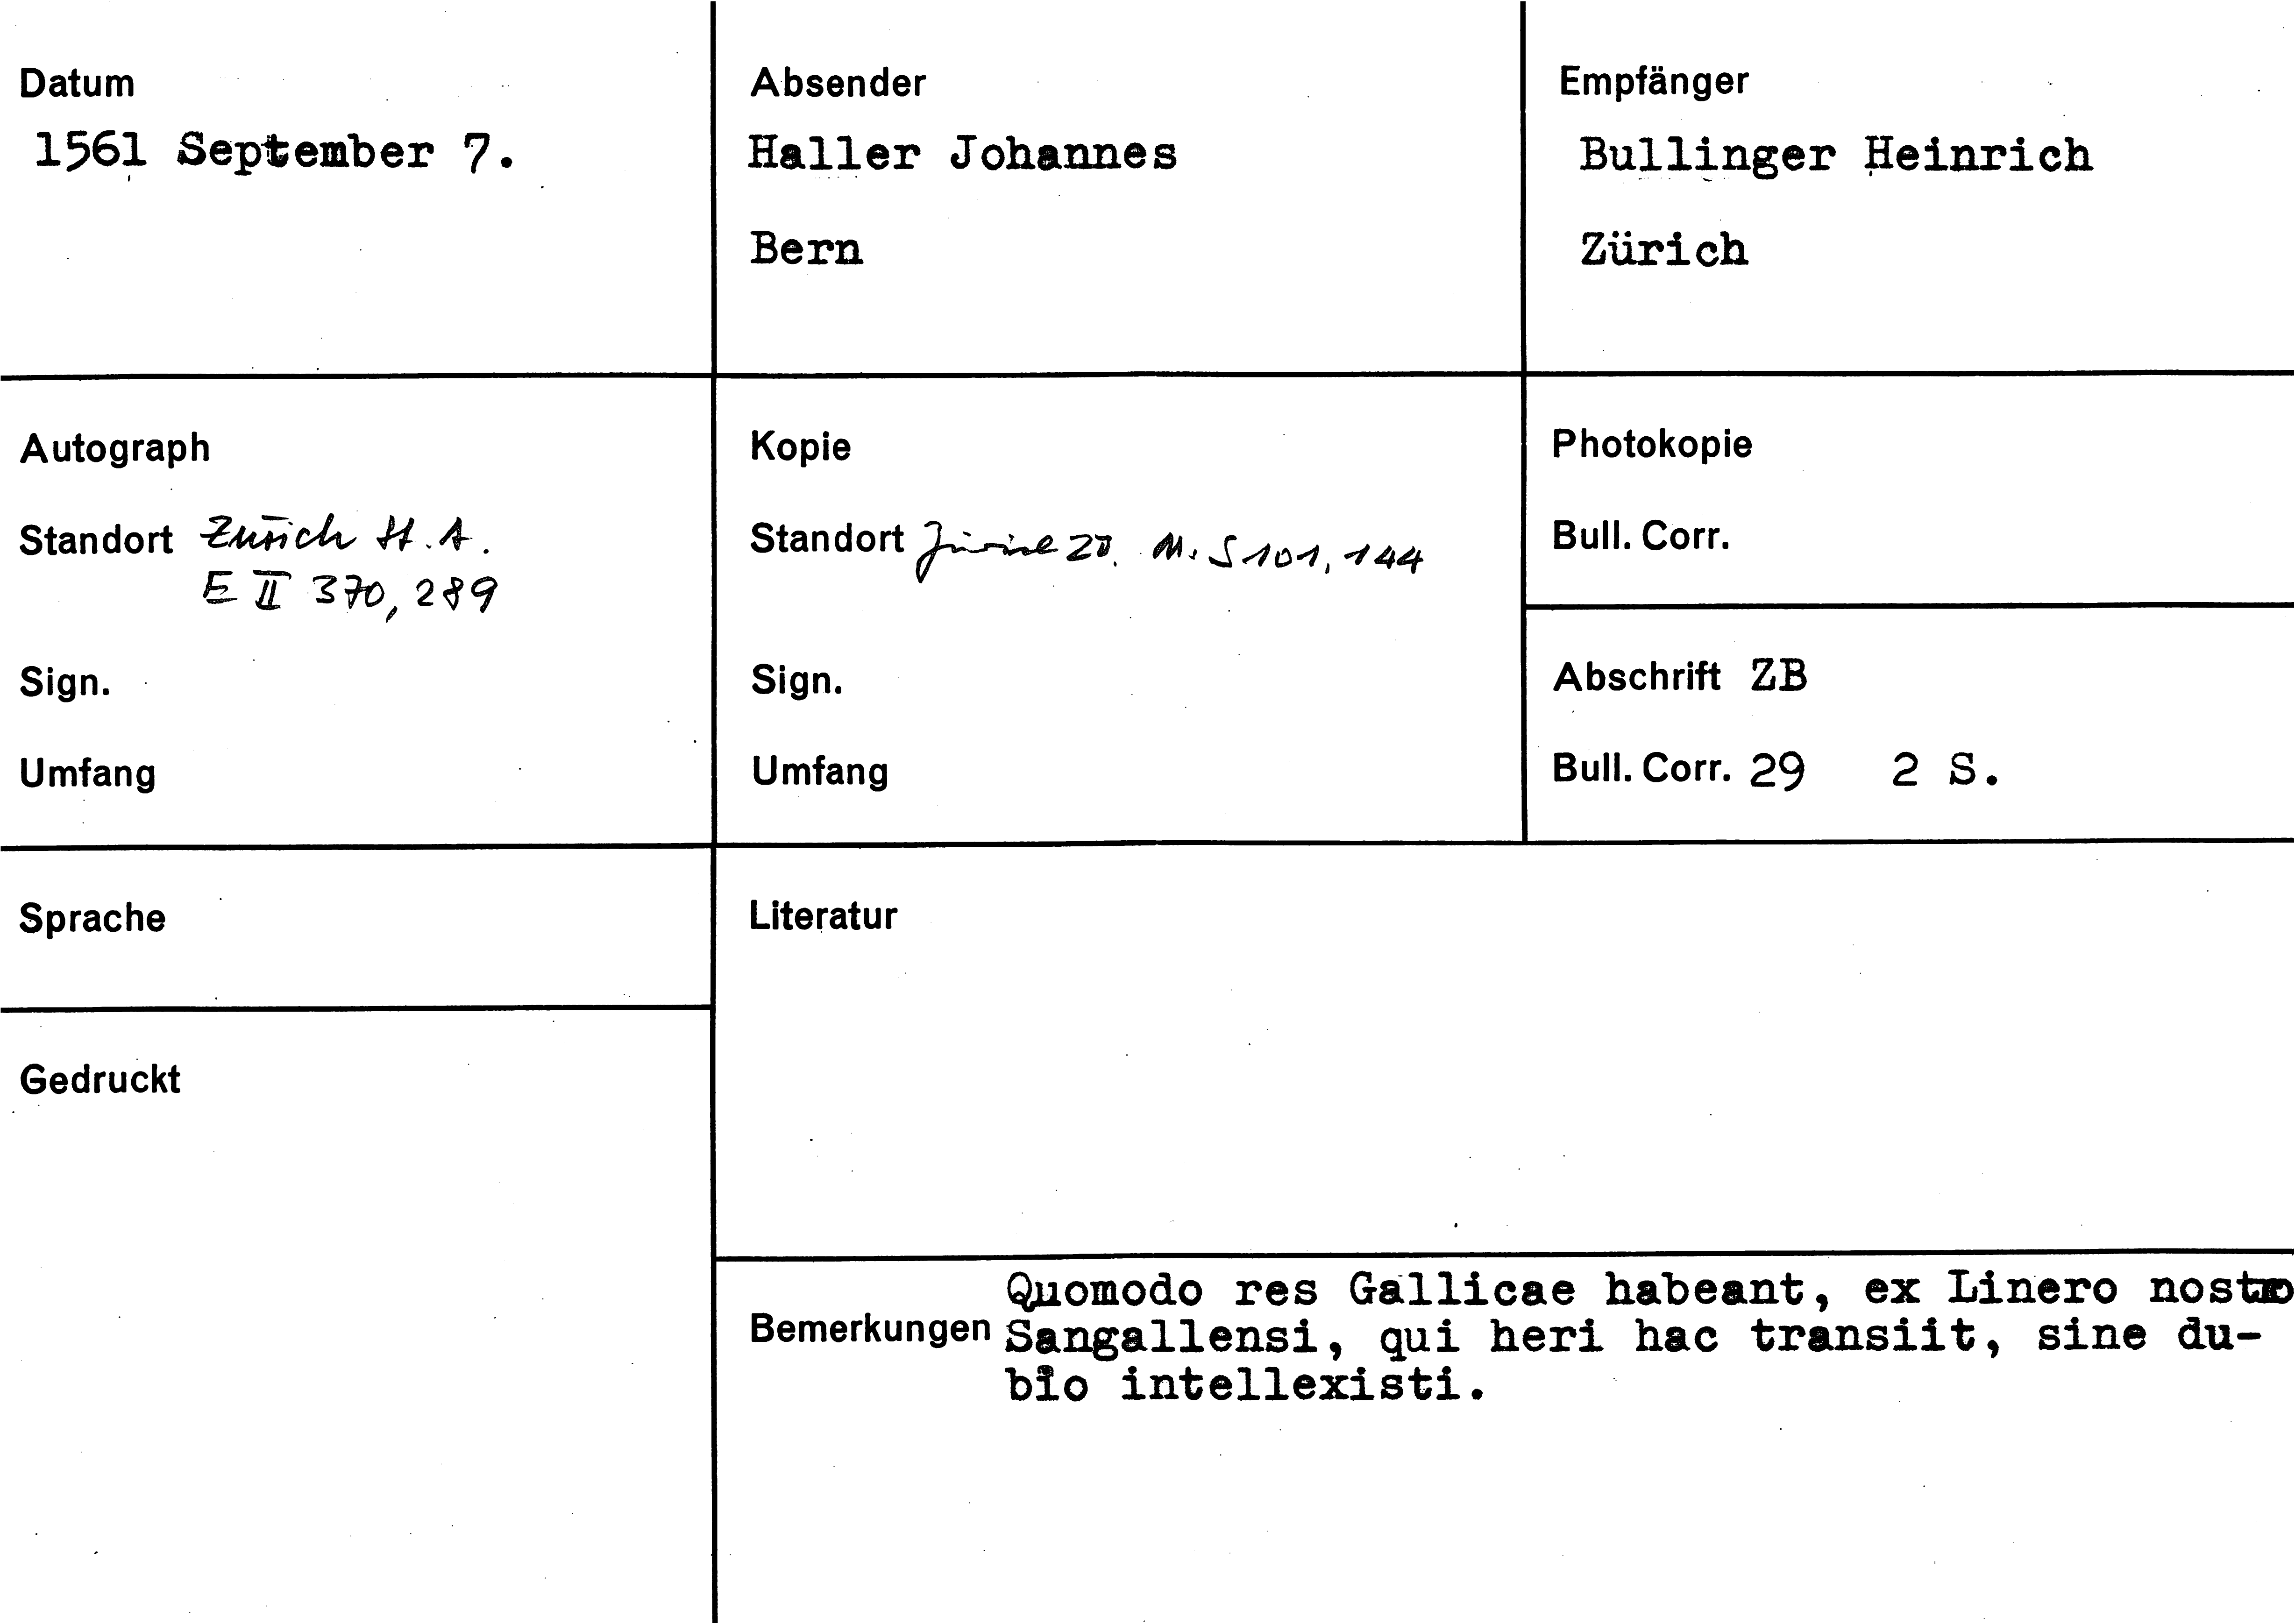 Datum
1561 September 7.
Absender
Haller Johannes
Bern
Empfänger
Bullinger Heinrich
Zürich
Autograph
Standort Zürich St.A.
E II 370, 289
Sign.
Umfang
Kopie
Standort Zürich ZB. Ms S 101, 144
Sign.
Umfang
Photokopie
Bull. Corr.
Abschrift ZB
Bull. Corr. 29 2 S.
Sprache
Gedruckt
Literatur
Bemerkungen
Quomodo res Gallicae habeant, ex Linero nostro
Sangallensi, qui heri hac transiit, sine du-
bio intellexisti.